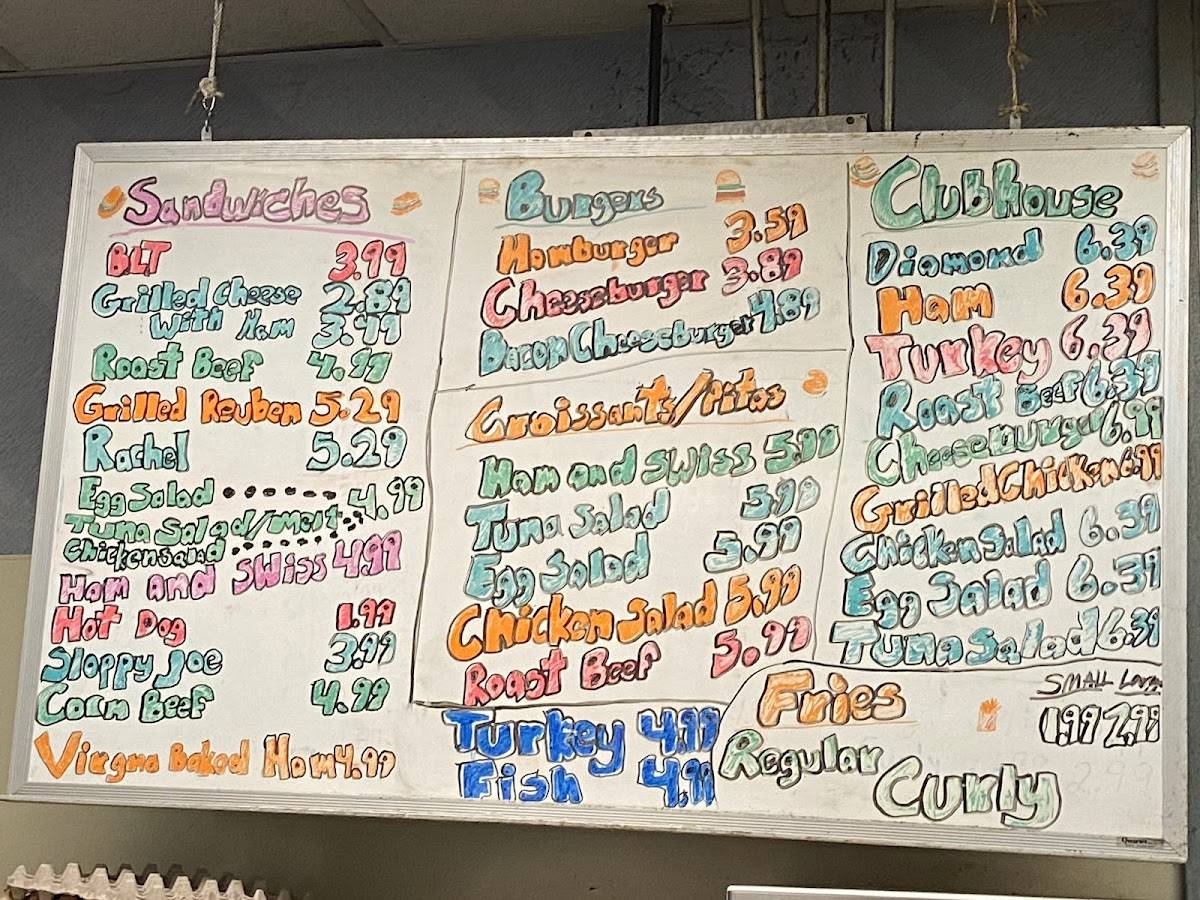 Sandwiches
BLT 3.99
Grilled Cheese 2.89
With Ham 3.49
Roast Beef 4.99
Grilled Reuben 5.29
Rachel 5.29
Egg Salad
Tuna Salad/melt 4.99
Chicken Salad
Ham and Swiss 4.99
Hot Dog 1.99
Sloppy Joe 3.99
Corn Beef 4.99
Virgna Baked Ham 4.99
Burgers
Hamburger 3.59
Cheeseburger 3.89
Bacon Cheeseburger 4.89
Croissants/Pitas
Ham and Swiss 5.99
Tuna Salad 5.99
Egg Salad 5.99
Chicken Salad 5.99
Roast Beef 5.99
Turkey 4.99
Fish 4.99
Clubhouse
Diamond 6.39
Ham 6.39
Turkey 6.39
Roast Beef 6.39
Cheeseburger 6.99
Grilled Chicken 6.99
Chicken Salad 6.39
Egg Salad 6.39
Tuna Salad 6.39
Fries
SMALL
1.99 2.99
Regular
Curly